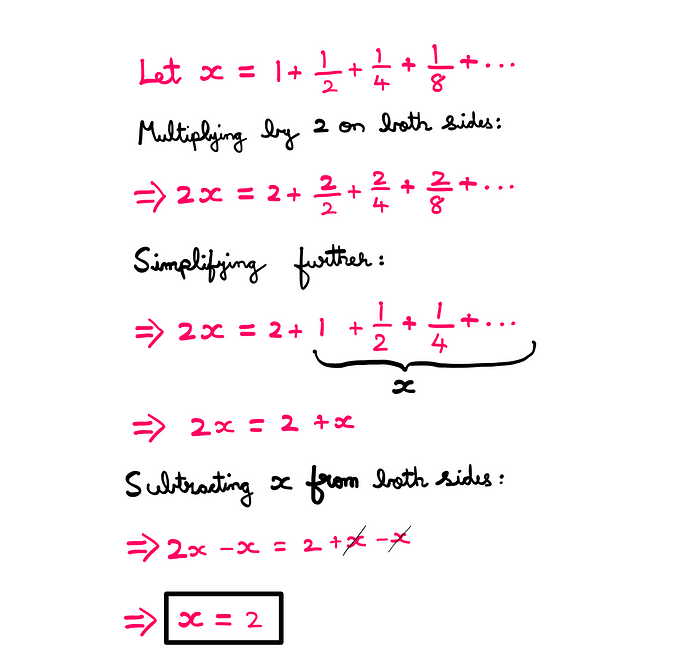 Let x = 1 + 1/2 + 1/4 + 1/8 + ...
Multiplying by 2 on both sides:
⇒ 2x = 2 + 2/2 + 2/4 + 2/8 + ...
Simplifying further:
⇒ 2x = 2 + 1 + 1/2 + 1/4 + ...
x
⇒ 2x = 2 + x
Subtracting x from both sides:
⇒ 2x - x = 2 + x - x
⇒ x = 2